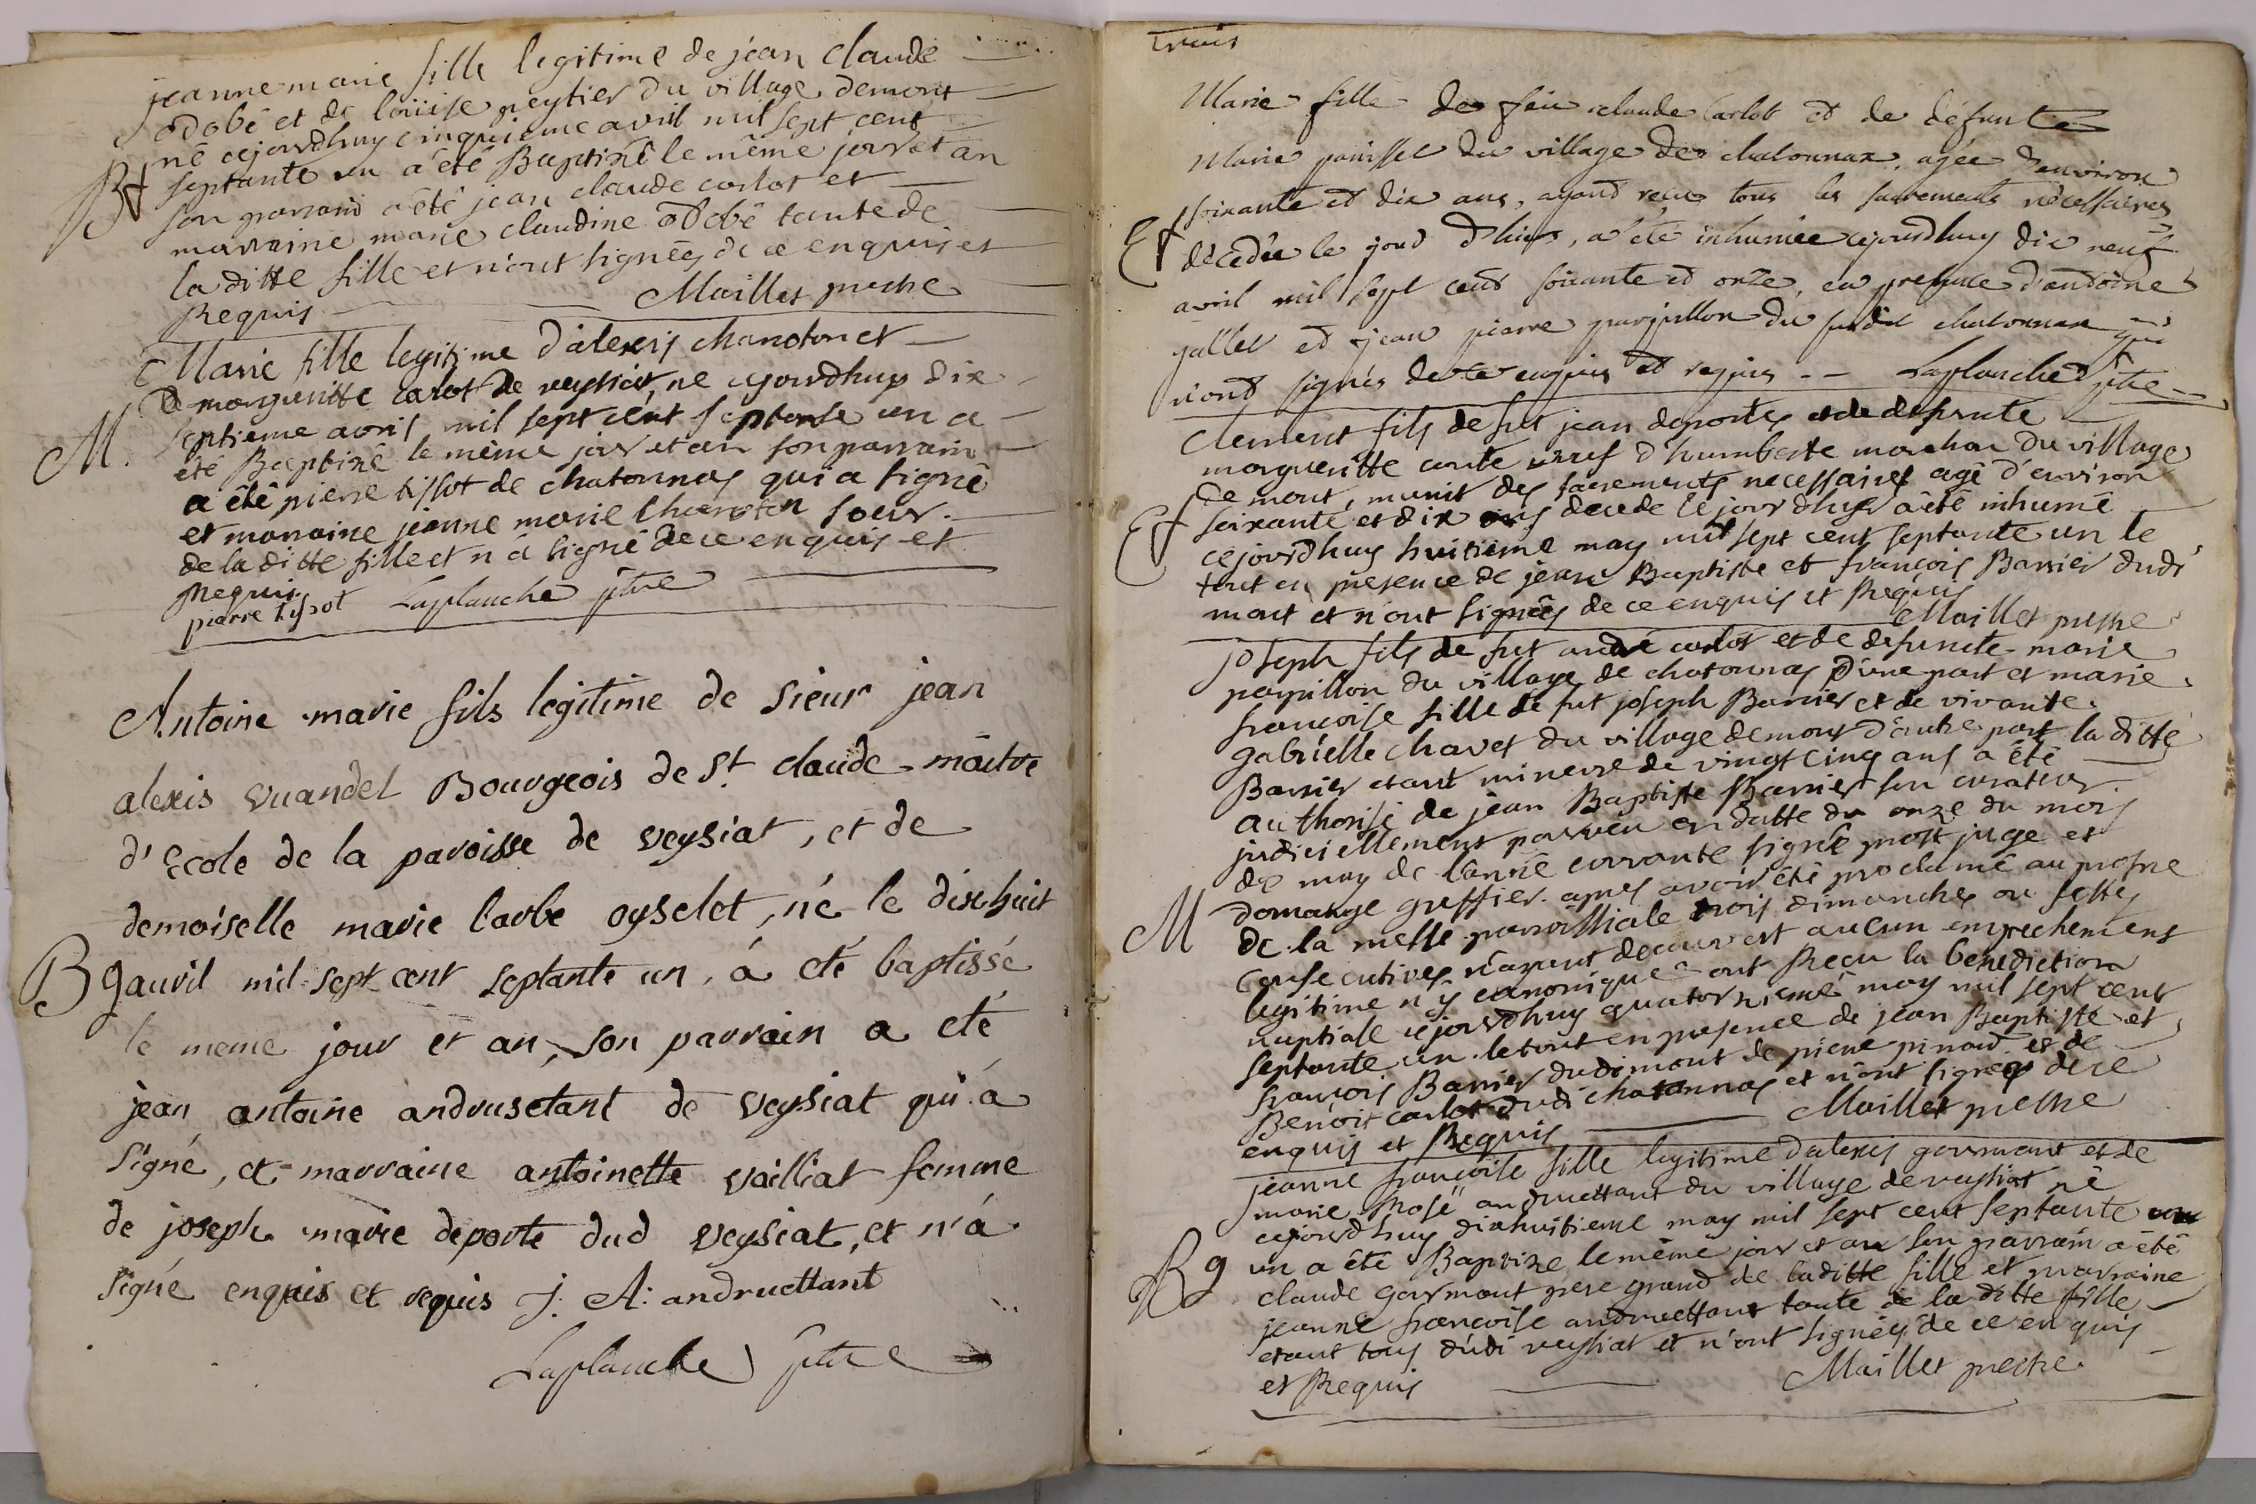 jeanne marie fille legitime de jean claude
odobé et de louise peytier du village demont
né cejourdhuy cinquieme avril mil sept cent
Bt
septante un a été Baptizé le même jour et an
son parrain a été jean claude carlot et
marraine marie claudine odobé tante de
la ditte fille et n'ont signéés de ce enquis et
Requis Maillet prestre
Marie fille legitime d'alexis chanoton et
De margueritte carlot de veysiat né cejourdhuy dix
M.
septieme avril mil sept cent septante un a
été Baptizé le même jour et an son parrain
a été pierre tissot de chatonnas qui a signé
et marraine jeanne marie Chanoton soeur
de la ditte fille et n'a signé de ce enquis et
Requis.
pierre tissot Laplanche ptre
Antoine marie fils legitime de sieur jean
alexis vuandel Bourgeois de St. claude maitre
d'Ecole de la paroisse de veysiat, et de
demoiselle marie barbe oyselet, né le dixhuit
B
avril mil sept cent septante un, á eté baptissé
le meme jour et an, son parrain a eté
jean antoine andrusetant de veysiat qui á
signé, et marraine antoinette vailliat femme
de joseph marie deporte dud veysiat, et n'á
signé enquis et requis J: A: andruettant
Laplanche ptre
trois
Marie fille de feu claude Carlot et de défunte
Marie du village de chatonnax, agée d'environ
soixante et dix ans, ayant recu tous les sacrements nécessaires
décedée le jour d'hier, a été inhumée cejourdhuy dix neuf
avril mil sept cent soixante et onze, en presence d'antoine
gallet et jean pierre du susdit chatonnax qui
n'ont signés de ce enquis et requis -- Laplanche ptre
Clement fils de fut jean deportes et de defunte
margueritte conte veuf d'humberte marchon du village
De mont, munit des sacrements necessaires agé d'environ
soixante et dix ans decedé le jour d'hyer a été inhumé
cejourdhuy huitieme may mil sept cent septante un le
tout en presence de jean Baptiste et françois Barrier dudi
mont et n'ont signéés de ce enquis et Requis
Maillet prestre
joseph fils de fut andré carlot et de defuncte marie
papillon du village de chatonnas d'une part et marie
françoise fille de fut joseph Barrier et de vivante
gabrielle chavet du village demont d'autre part la ditte
Barrier etant mineure de vingt cinq ans a été
authorisé de jean Baptiste Barrier son curateur
judiciellement pourveu en datte du onze du mois
de may de l'anné courante signé prost juge et
M
domange greffier. apres avoir été proclamé au prosne
de la messe parroissiale trois dimanches ou festes
Consecutives n'ayant decouvert aucun empechement
legitime n'y canonique ont Recu la benediction
nuptiale cejourdhuy quatorzieme may mil sept cent
septante un. le tout en presence de jean Baptiste et
francois Barrier dudi mont de pierre pinard et de
Benoit carlot dudi chatonnas et n'ont signéés de ce
enquis et Requis Maillet prestre
jeanne françoise fille legitime d'alexis gourmant et de
marie Rose andruettant du village de veysiat né
cejourdhuy dixhuitieme may mil sept cent septante
B9
un a été Baptize le même jour et an son parrain a été
claude gourmant pere grand de laditte fille et marraine
jeanne françoise andruettant tante de la ditte fille
etant tous dudi veysiat et n'ont signéés de ce enquis
et Requis Maillet prestre